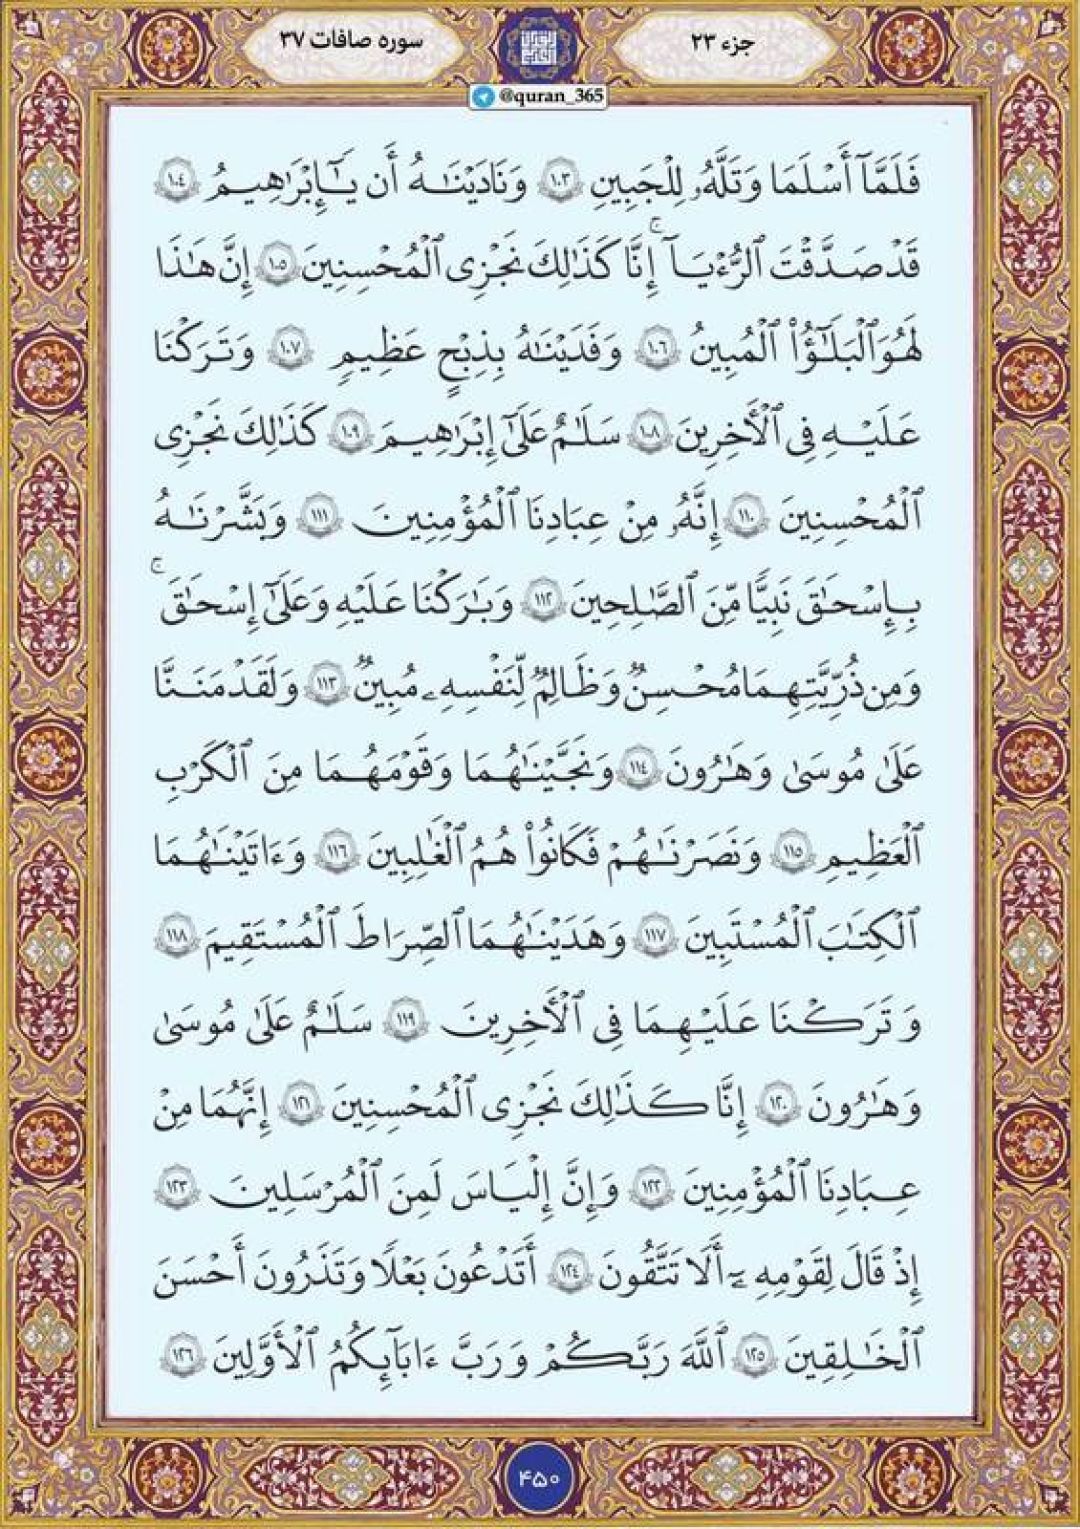 جزء ۲۳
سوره صافات ۳۷
@quran_365
فَلَمَّآ أَسْلَمَا وَتَلَّهُۥ لِلْجَبِينِ ١٠٣ وَنَادَيْنَـٰهُ أَن يَـٰٓإِبْرَٰهِيمُ ١٠٤
قَدْ صَدَّقْتَ ٱلرُّءْيَآ ۚ إِنَّا كَذَٰلِكَ نَجْزِى ٱلْمُحْسِنِينَ ١٠٥ إِنَّ هَـٰذَا
لَهُوَ ٱلْبَلَـٰٓؤُا۟ ٱلْمُبِينُ ١٠٦ وَفَدَيْنَـٰهُ بِذِبْحٍ عَظِيمٍ ١٠٧ وَتَرَكْنَا
عَلَيْهِ فِى ٱلْأَخِرِينَ ١٠٨ سَلَـٰمٌ عَلَىٰٓ إِبْرَٰهِيمَ ١٠٩ كَذَٰلِكَ نَجْزِى
ٱلْمُحْسِنِينَ ١١٠ إِنَّهُۥ مِنْ عِبَادِنَا ٱلْمُؤْمِنِينَ ١١١ وَبَشَّرْنَـٰهُ
بِإِسْحَـٰقَ نَبِيًّا مِّنَ ٱلصَّـٰلِحِينَ ١١٢ وَبَـٰرَكْنَا عَلَيْهِ وَعَلَىٰٓ إِسْحَـٰقَ ۚ
وَمِن ذُرِّيَّتِهِمَا مُحْسِنٌ وَظَالِمٌ لِّنَفْسِهِۦ مُبِينٌ ١١٣ وَلَقَدْ مَنَنَّا
عَلَىٰ مُوسَىٰ وَهَـٰرُونَ ١١٤ وَنَجَّيْنَـٰهُمَا وَقَوْمَهُمَا مِنَ ٱلْكَرْبِ
ٱلْعَظِيمِ ١١٥ وَنَصَرْنَـٰهُمْ فَكَانُوا۟ هُمُ ٱلْغَـٰلِبِينَ ١١٦ وَءَاتَيْنَـٰهُمَا
ٱلْكِتَـٰبَ ٱلْمُسْتَبِينَ ١١٧ وَهَدَيْنَـٰهُمَا ٱلصِّرَاطَ ٱلْمُسْتَقِيمَ ١١٨
وَتَرَكْنَا عَلَيْهِمَا فِى ٱلْأَخِرِينَ ١١٩ سَلَـٰمٌ عَلَىٰ مُوسَىٰ
وَهَـٰرُونَ ١٢٠ إِنَّا كَذَٰلِكَ نَجْزِى ٱلْمُحْسِنِينَ ١٢١ إِنَّهُمَا مِنْ
عِبَادِنَا ٱلْمُؤْمِنِينَ ١٢٢ وَإِنَّ إِلْيَاسَ لَمِنَ ٱلْمُرْسَلِينَ ١٢٣
إِذْ قَالَ لِقَوْمِهِۦٓ أَلَا تَتَّقُونَ ١٢٤ أَتَدْعُونَ بَعْلًا وَتَذَرُونَ أَحْسَنَ
ٱلْخَـٰلِقِينَ ١٢٥ ٱللَّهَ رَبَّكُمْ وَرَبَّ ءَابَآئِكُمُ ٱلْأَوَّلِينَ ١٢٦
۴۵۰